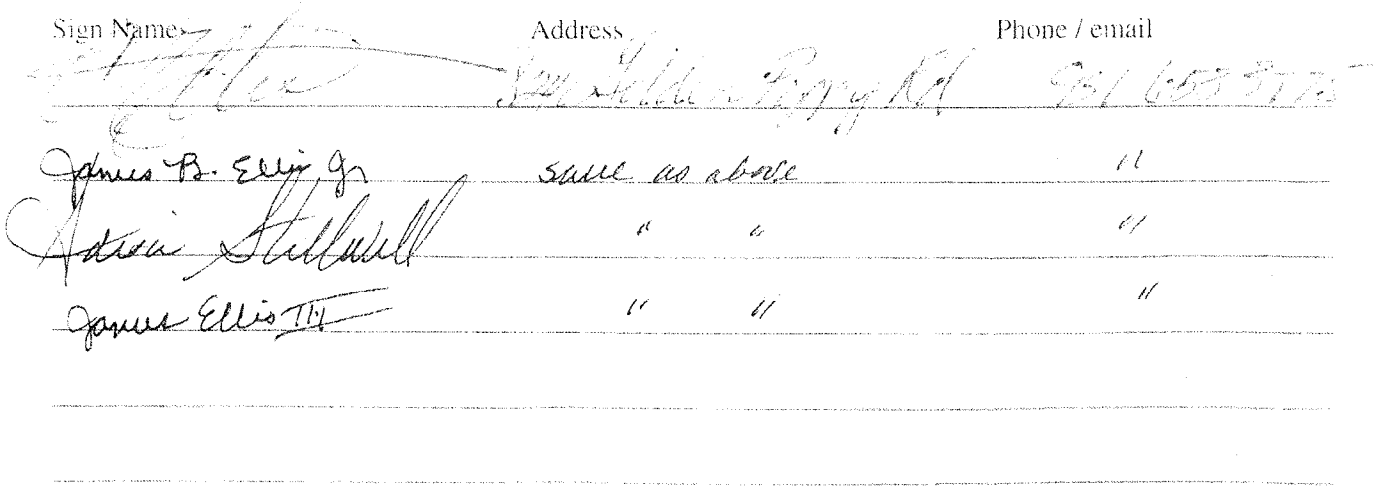 Sign Name Address Phone / email
Golden Poppy Rd 951 658 3775
James B. Ellis Jr same as above "
Stillwell " " "
James Ellis III " " "